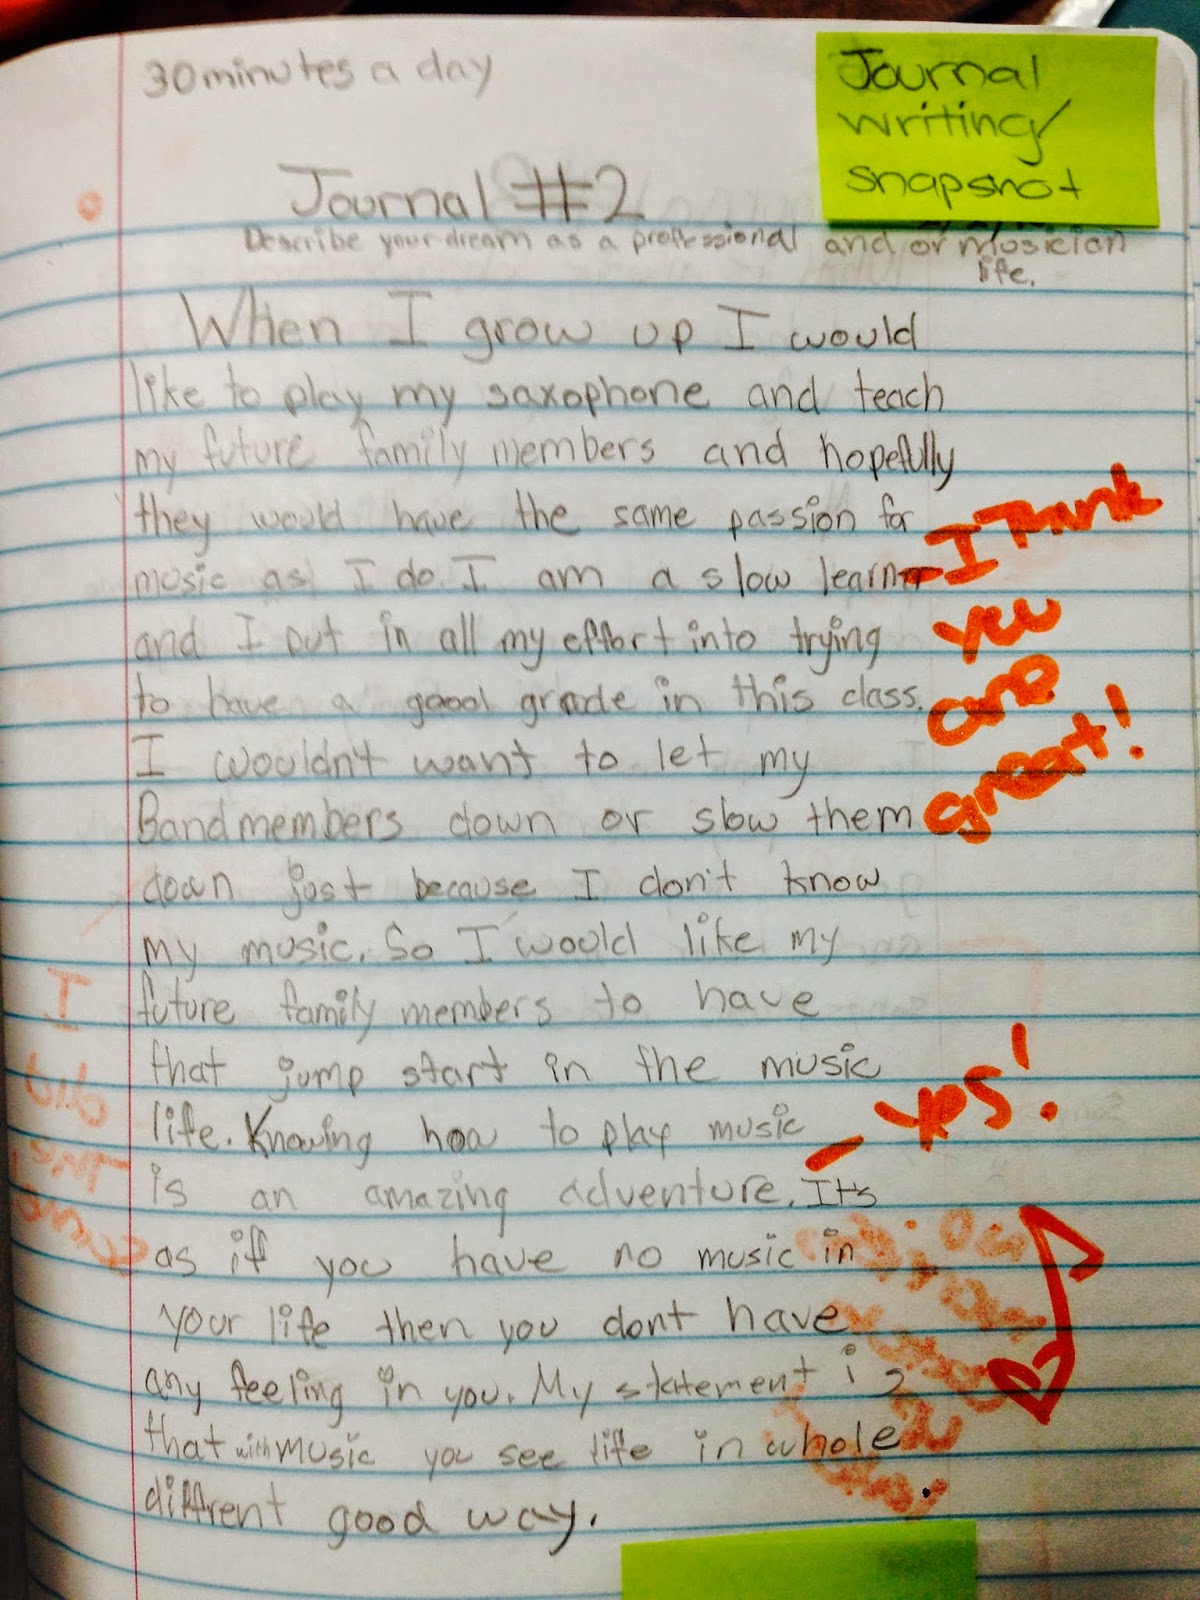 30 minutes a day
Journal
writing/
snapshot
Journal #2
Describe your dream as a proffessional and or musician
life.
When I grow up I would
like to play my saxophone and teach
my future family members and hopefully
they would have the same passion for
music as I do. I am a slow learner
and I put in all my effort into trying
to have a good grade in this class.
I wouldn't want to let my
Bandmembers down or slow them
down just because I don't know
my music. So I would like my
future family members to have
that jump start in the music
life. Knowing how to play music
is an amazing adventure. It's
as if you have no music in
your life then you dont have
any feeling in you. My statement is
that with music you see life in whole
different good way.
I Think
you
are
great!
- yes!